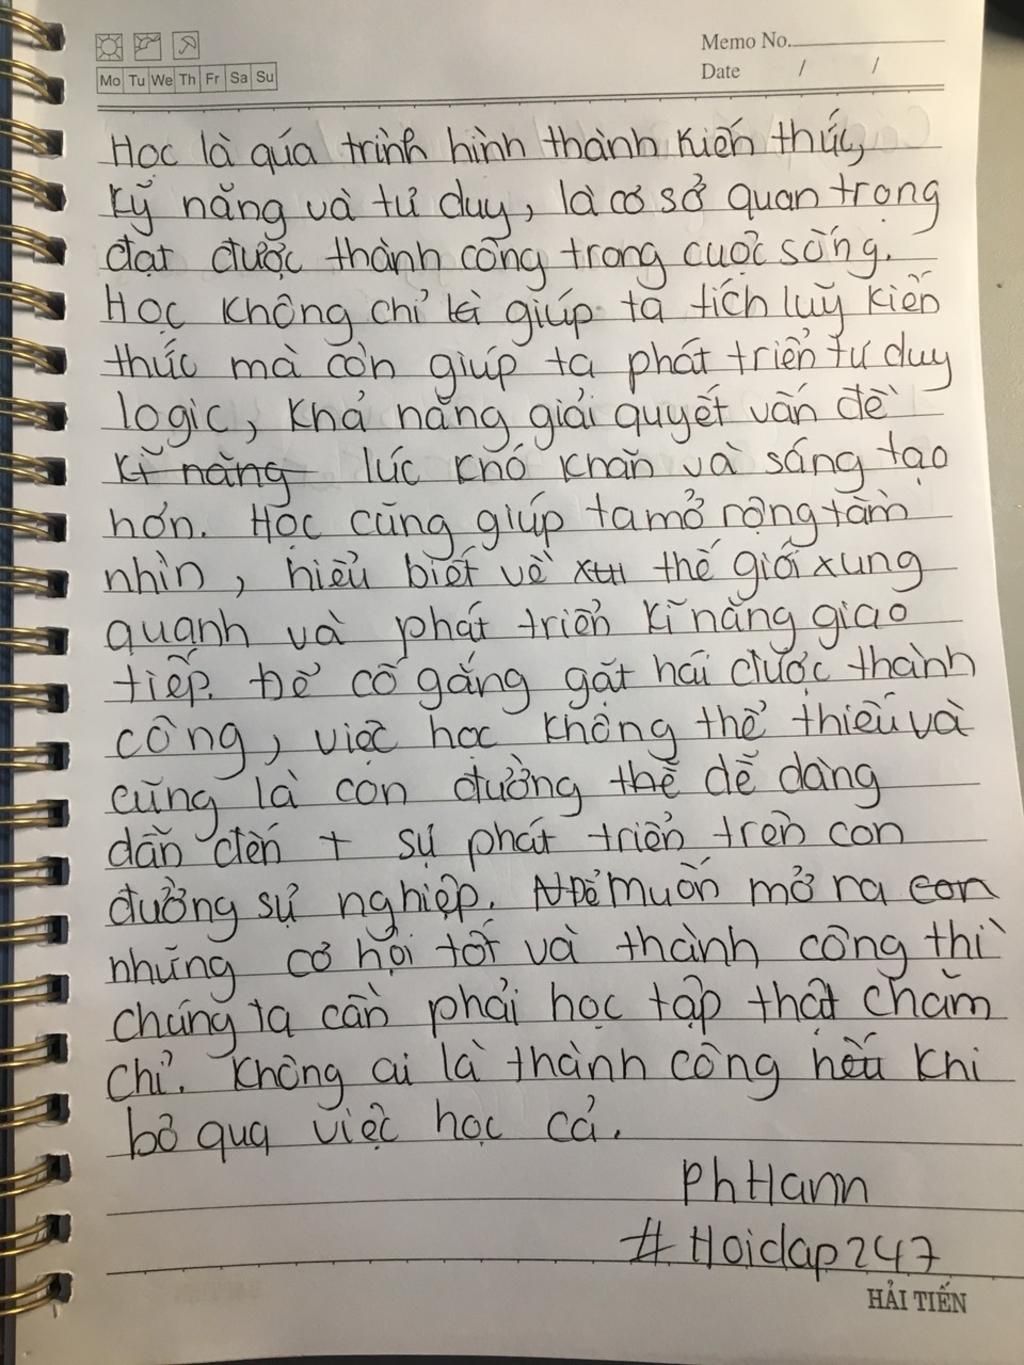 Memo No.
Mo Tu We Th Fr Sa Su
Date / /
Học là qúa trình hình thành kiến thức,
kỹ năng và tư duy, là cơ sở quan trọng
đạt được thành công trong cuộc sống.
Học không chỉ là giúp ta tích luỹ kiến
thức mà còn giúp ta phát triển tư duy
logic, khả năng giải quyết vấn đề
kĩ năng lúc khó khăn và sáng tạo
hơn. Học cũng giúp ta mở rộng tầm
nhìn, hiểu biết về thế giới xung
quanh và phát triển kĩ năng giao
tiếp. Để cố gắng gặt hái được thành
công, việc học không thể thiếu và
cũng là con đường thể dễ dàng
dẫn đến t sự phát triển trên con
đường sự nghiệp. Để muốn mở ra con
những cơ hội tốt và thành công thì
chúng ta cần phải học tập thật chăm
chỉ. Không ai là thành công nếu khi
bỏ qua việc học cả.
PhHann
#Hoidap247
HẢI TIẾN